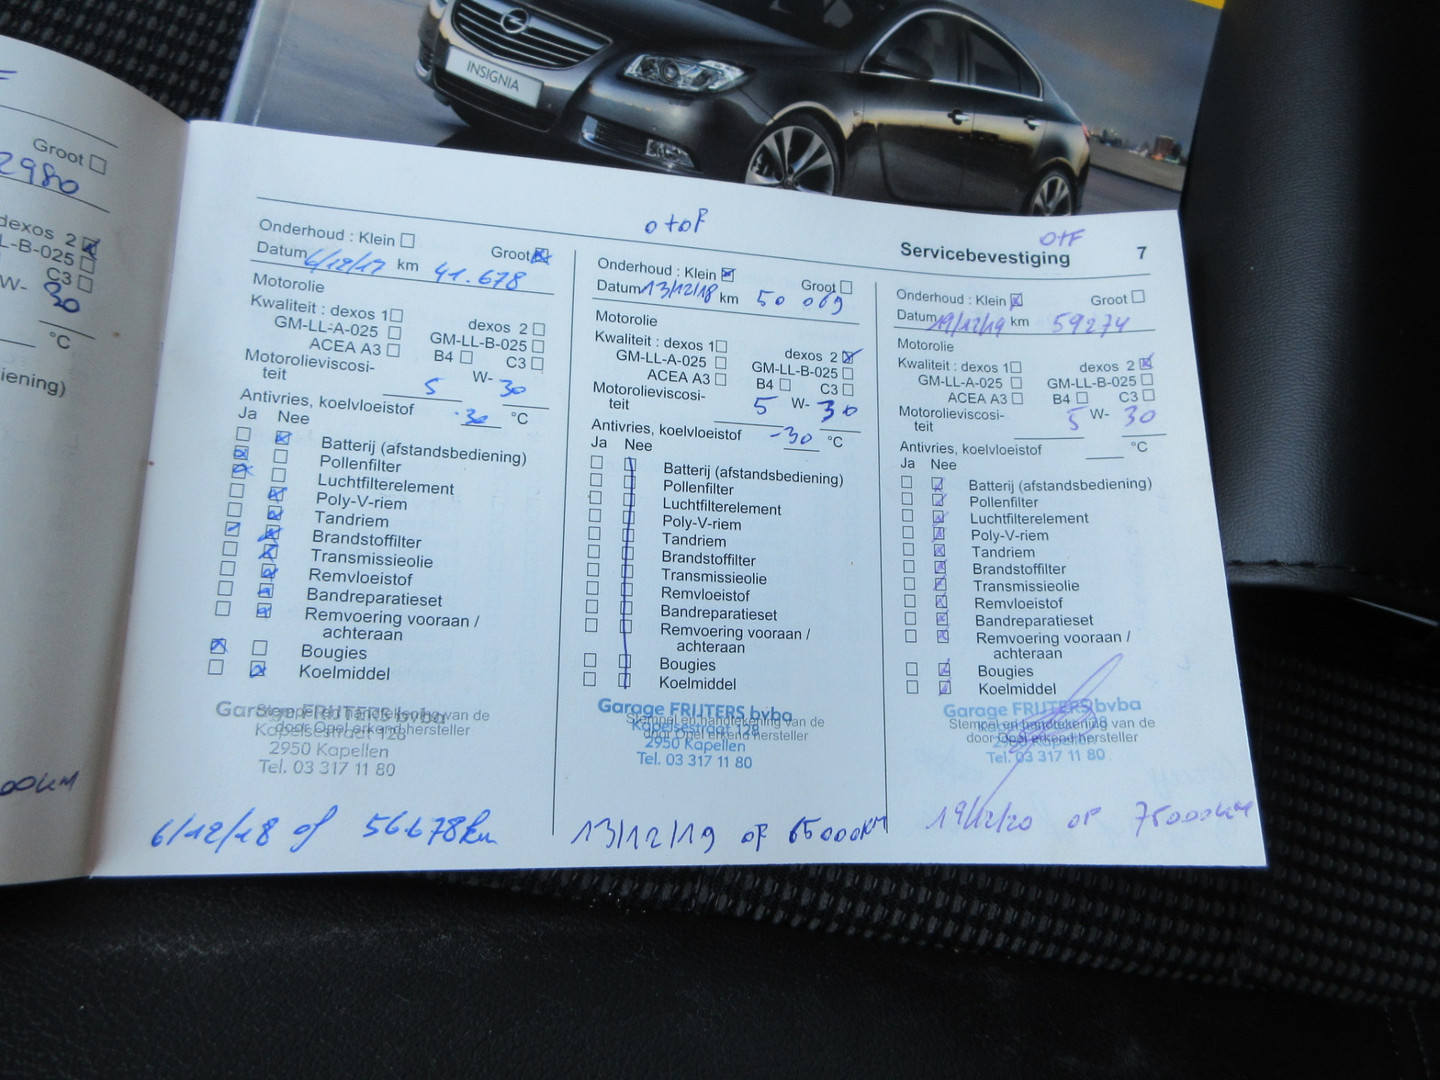 INSIGNIA
Groot
2980
dexos 2
LL-B-025
C3
W- 30
°C
iening)
00KM
Servicebevestiging 7
Onderhoud : Klein Groot
Datum 6/12/17 km 41.678
Motorolie
Kwaliteit : dexos 1 dexos 2
GM-LL-A-025 GM-LL-B-025
ACEA A3 B4 C3
Motorolieviscosi-
teit 5 W- 30
Antivries, koelvloeistof -30 °C
Ja Nee
Batterij (afstandsbediening)
Pollenfilter
Luchtfilterelement
Poly-V-riem
Tandriem
Brandstoffilter
Transmissieolie
Remvloeistof
Bandreparatieset
Remvoering vooraan /
achteraan
Bougies
Koelmiddel
Garage FRIJTERS bvba
Stempel en handtekening van de
door Opel erkend hersteller
Kapelsestraat 128
2950 Kapellen
Tel. 03 317 11 80
6/12/18 of 56.678km
o+oF
Onderhoud : Klein Groot
Datum 13/12/18 km 50 069
Motorolie
Kwaliteit : dexos 1 dexos 2
GM-LL-A-025 GM-LL-B-025
ACEA A3 B4 C3
Motorolieviscosi-
teit 5 W- 30
Antivries, koelvloeistof -30 °C
Ja Nee
Batterij (afstandsbediening)
Pollenfilter
Luchtfilterelement
Poly-V-riem
Tandriem
Brandstoffilter
Transmissieolie
Remvloeistof
Bandreparatieset
Remvoering vooraan /
achteraan
Bougies
Koelmiddel
Garage FRIJTERS bvba
Stempel en handtekening van de
door Opel erkend hersteller
Kapelsestraat 128
2950 Kapellen
Tel. 03 317 11 80
13/12/19 oF 65000KM
O+F
Onderhoud : Klein Groot
Datum 19/12/19 km 59274
Motorolie
Kwaliteit : dexos 1 dexos 2
GM-LL-A-025 GM-LL-B-025
ACEA A3 B4 C3
Motorolieviscosi-
teit 5 W- 30
Antivries, koelvloeistof °C
Ja Nee
Batterij (afstandsbediening)
Pollenfilter
Luchtfilterelement
Poly-V-riem
Tandriem
Brandstoffilter
Transmissieolie
Remvloeistof
Bandreparatieset
Remvoering vooraan /
achteraan
Bougies
Koelmiddel
Garage FRIJTERS bvba
Stempel en handtekening van de
door Opel erkend hersteller
2950 Kapellen
Tel. 03 317 11 80
19/12/20 oF 75000KM